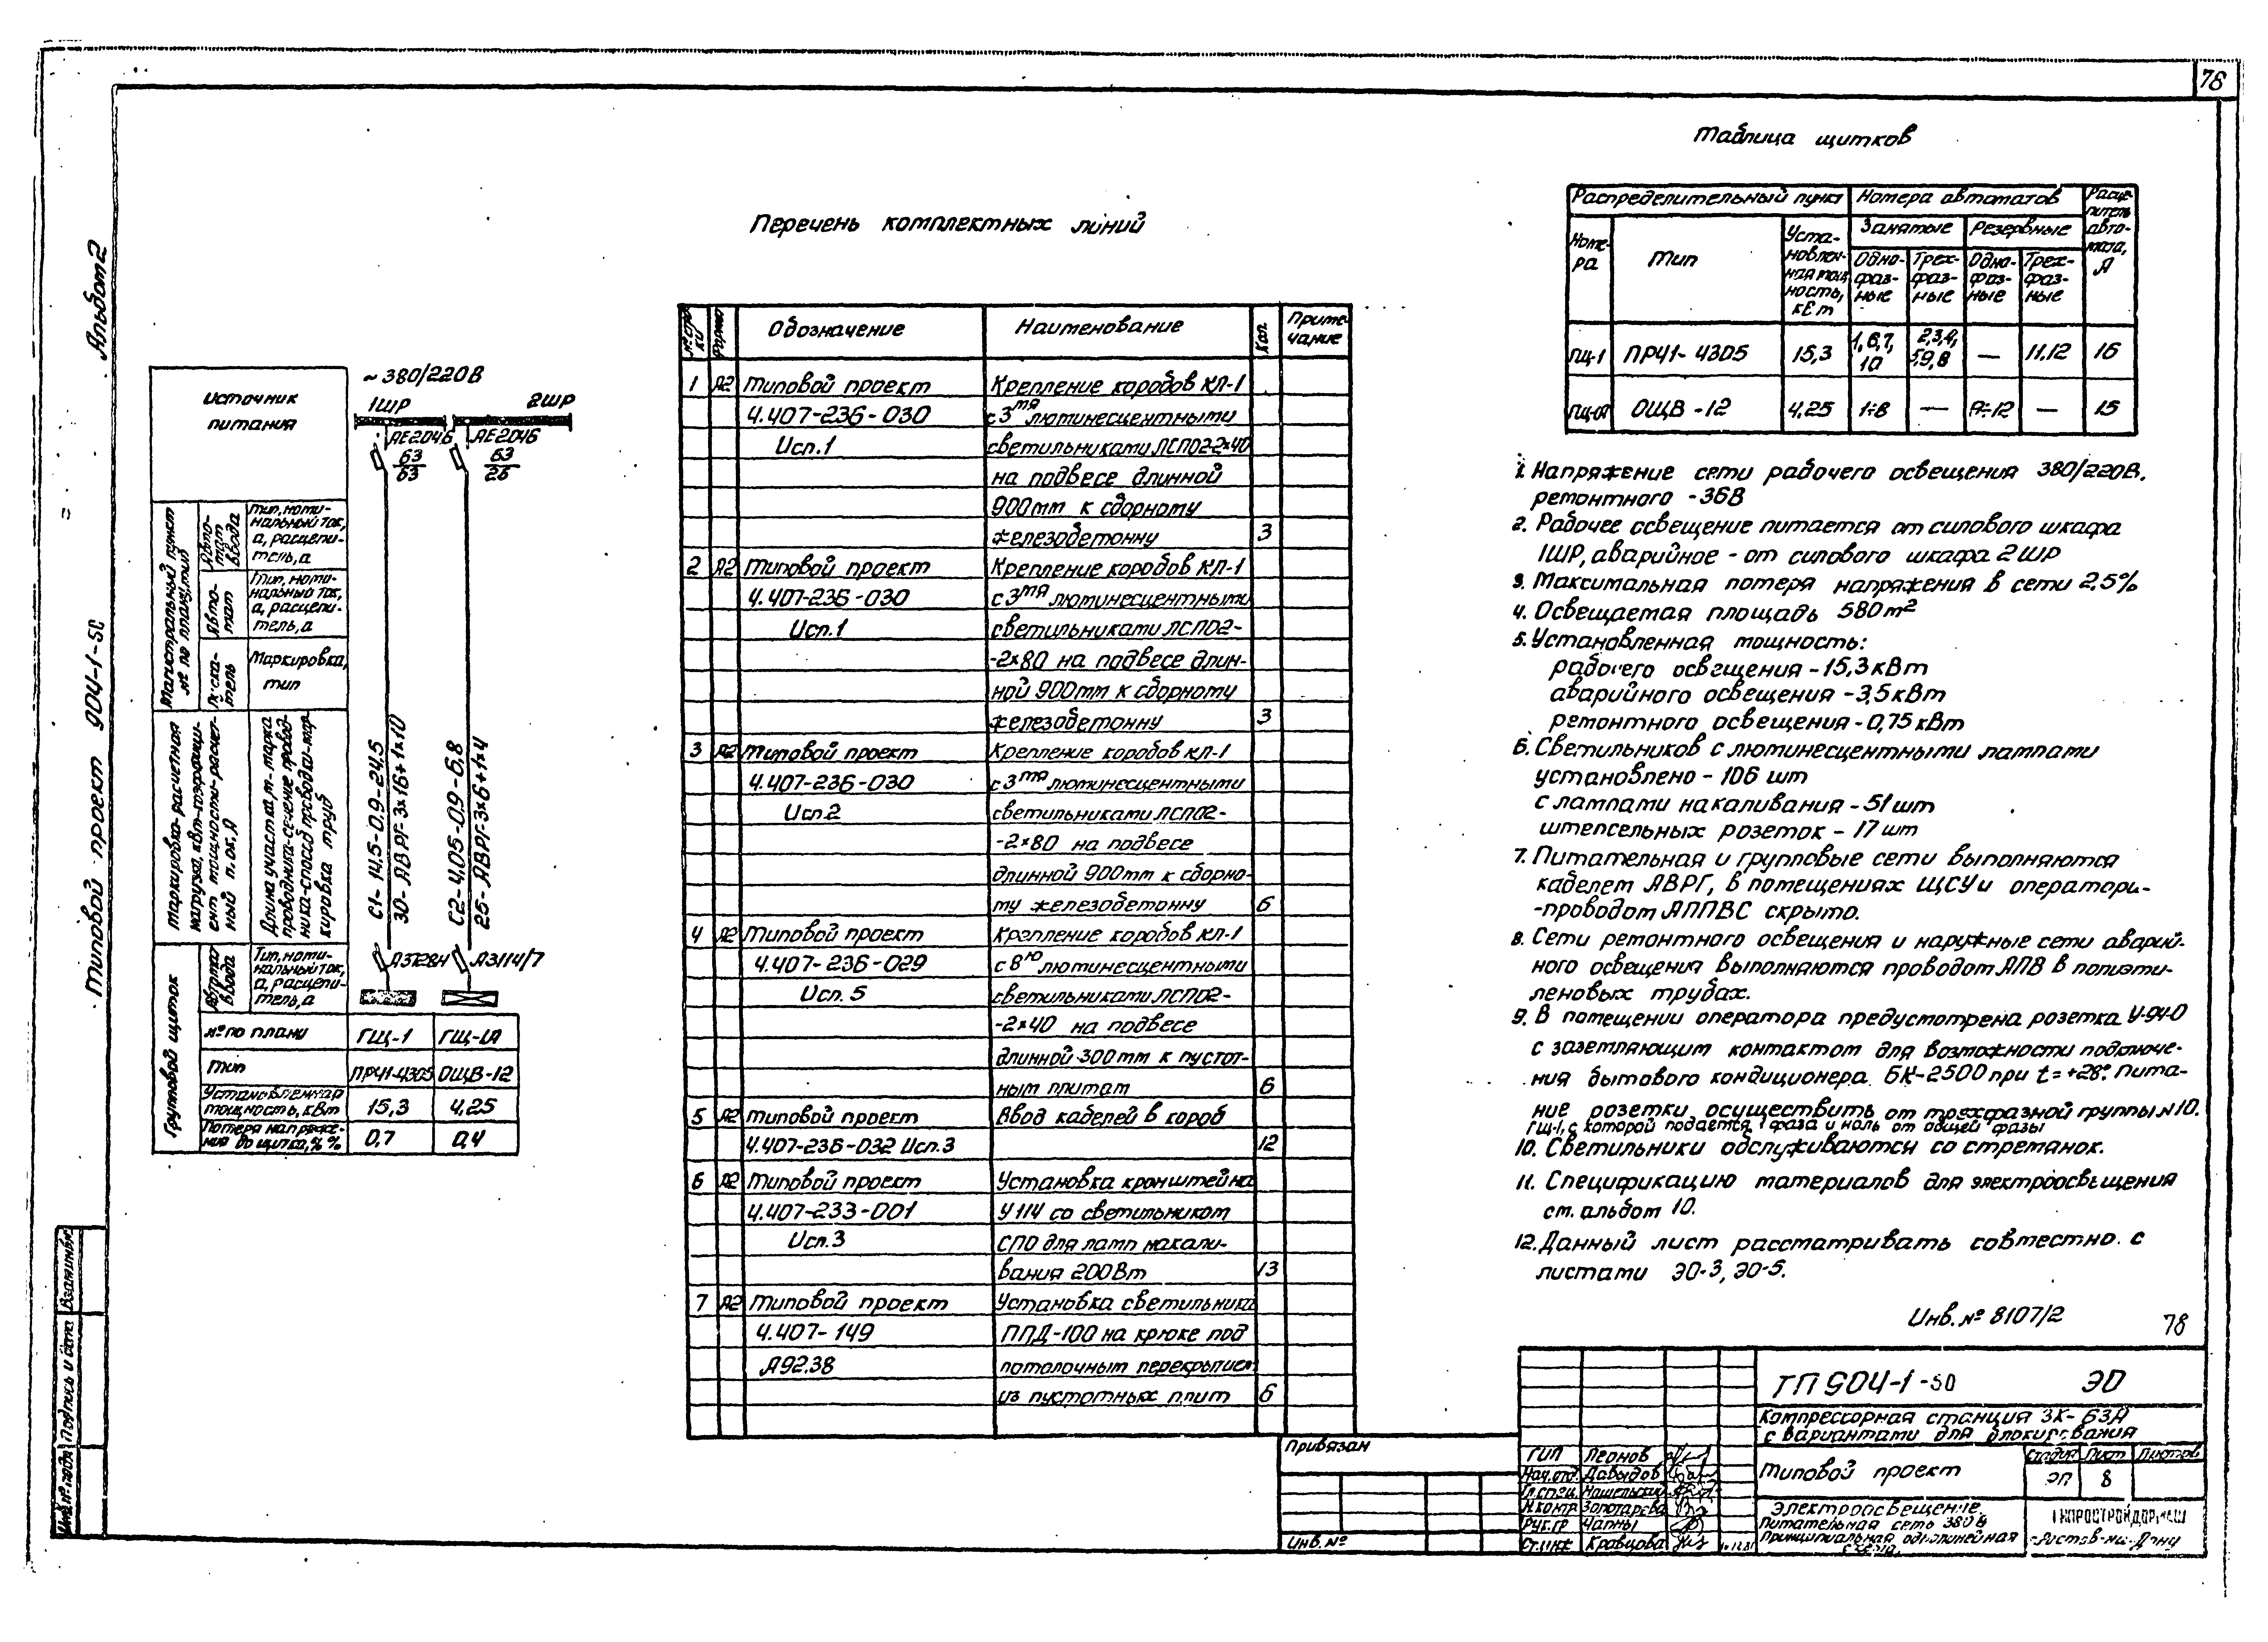 78
Альбом 2
Типовой проект 904-1-50
Таблица щитков
Распределительный пункт
Номера автоматов
Расце-
питель
авто-
мата,
А
Номе-
ра
Тип
Уста-
новлен-
ная мощ
ность,
кВт
Занятые
Резервные
Одно-
фаз-
ные
Трех-
фаз-
ные
Одно-
фаз-
ные
Трех-
фаз-
ные
ГЩ-1 ПР41-4305 15,3 1,6,7,10 2,3,4,5,9,8 — 11.12 16
ГЩ-1А ОЩВ-12 4,25 1÷8 — 9÷12 — 15
Перечень комплектных линий
№ стро
ки
Формат
Обозначение
Наименование
Кол.
Приме-
чание
1 А2 Типовой проект Крепление коробов КЛ-1
4.407-236-030 с 3мя люминесцентными
Исп.1 светильниками ЛСП02-2×40
на подвесе длинной
900мм к сборному
железобетонну 3
2 А2 Типовой проект Крепление коробов КЛ-1
4.407-236-030 с 3мя люминесцентными
Исп.1 светильниками ЛСП02-
-2×80 на подвесе длин-
ной 900мм к сборному
железобетонну 3
3 А2 Типовой проект Крепление коробов КЛ-1
4.407-236-030 с 3мя люминесцентными
Исп.2 светильниками ЛСП02-
-2×80 на подвесе
длинной 900мм к сборно-
му железобетонну 6
4 А2 Типовой проект Крепление коробов КЛ-1
4.407-236-029 с 8ю люминесцентными
Исп. 5 светильниками ЛСП02-
-2×40 на подвесе
длинной 300мм к пустот-
ным плитам 6
5 А2 Типовой проект Ввод кабелей в короб
4.407-236-032 Исп.3 12
6 А2 Типовой проект Установка кронштейна
4.407-233-001 У114 со светильником
Исп.3 СПО для ламп накали-
вания 200Вт 13
7 А2 Типовой проект Установка светильника
4.407-149 ППД-100 на крюке под
А92.38 потолочным перекрытием
из пустотных плит 6
Источник
питания
~380/220В
1ШР
2ШР
АЕ2046
63
63
АЕ2046
63
25
Магистральный пункт
№ по плану, тип
Авто-
мат
ввода
Тип, номи-
нальный ток,
а, расцепи-
тель, а
Авто-
мат
Тип, номи-
нальный ток,
а, расцепи-
тель, а
Пуска-
тель
Маркировка,
тип
Маркировка-расчетная
нагрузка, квт-коэффици-
ент мощности-расчет-
ный ток, А
Длина участка, м-марка
проводника-сечение провод-
ника-способ проводки-мар-
кировка труб
С1-14,5-0.9-24,5
30-АВРГ-3×16+1×10
С2-4.05-0.9-6.8
25-АВРГ-3×6+1×4
Групповой щиток
Автомат
ввода
Тип, номи-
нальный ток,
а, расцепи-
тель, а
А3114/7
№ по плану ГЩ-1 ГЩ-1А
Тип ПР41-4305 ОЩВ-12
Установленная
мощность, кВт 15,3 4,25
Потеря напряже-
ния до щитка, % % 0,7 0,4
1. Напряжение сети рабочего освещения 380/220В.
ремонтного -36В
2. Рабочее освещение питается от силового шкафа
1ШР, аварийное - от силового шкафа 2ШР
3. Максимальная потеря напряжения в сети 2,5%
4. Освещаемая площадь 580м²
5. Установленная мощность:
рабочего освещения -15,3кВт
аварийного освещения -3,5кВт
ремонтного освещения -0,75кВт
6. Светильников с люминесцентными лампами
установлено - 106 шт
с лампами накаливания -51шт
штепсельных розеток - 17шт
7. Питательная и групповые сети выполняются
кабелем АВРГ, в помещениях ЩСУ и оператори-
-проводом АППВС скрыто.
8. Сети ремонтного освещения и наружные сети аварий-
ного освещения выполняются проводом АПВ в полиэти-
леновых трубах.
9. В помещении оператора предусмотрена розетка У-94-0
с заземляющим контактом для возможности подключе-
ния бытового кондиционера БК-2500 при t=+28°. Пита-
ние розетки осуществить от трехфазной группы N10.
ГЩ-1, с которой подается 1 фаза и ноль от общей фазы
10. Светильники обслуживаются со стремянок.
11. Спецификацию материалов для электроосвещения
см. альбом 10.
12. Данный лист рассматривать совместно с
листами ЭО-3, ЭО-5.
Инв. № 8107/2
78
ТП 904-1-50 ЭО
Компрессорная станция 3К-63А
с вариантами для блокирования
Типовой проект
Стадия Лист Листов
ЭП 8
Электроосвещение
Питательная сеть 380В
Принципиальная однолинейная
схема.
ГИПРОСТРОЙДОРМАШ
г. Ростов-на-Дону
ГИП Леонов
Нач.отд. Давыдов
Гл.спец.
Н.контр Золотарева
Рук.гр Чапны
Ст.инж Кравцова
Привязан
Инв. №
Взам.инв.№
Подпись и дата
Инв.№ подл